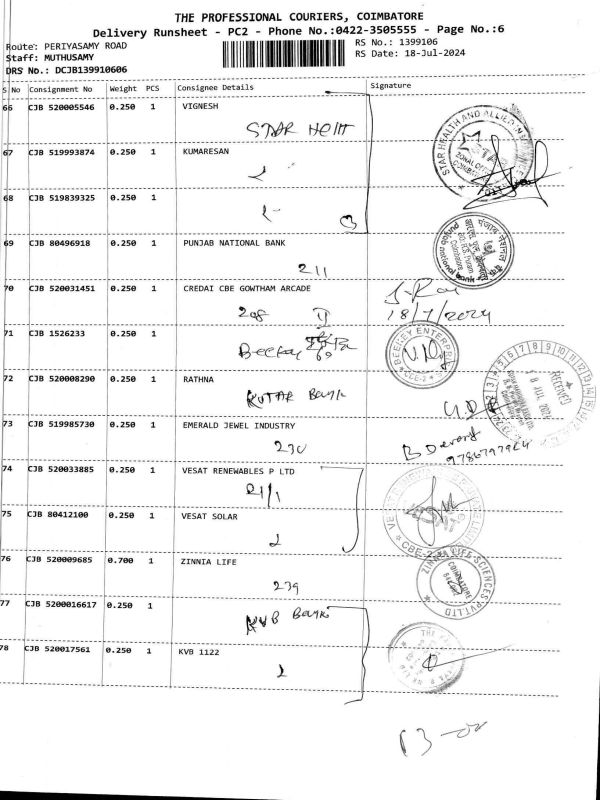 THE PROFESSIONAL COURIERS, COIMBATORE
Delivery Runsheet - PC2 - Phone No.:0422-3505555 - Page No.:6
Route: PERIYASAMY ROAD
RS No.: 1399106
Staff: MUTHUSAMY
RS Date: 18-Jul-2024
DRS No.: DCJB139910606
S No Consignment No Weight PCS Consignee Details Signature
66 CJB 520005546 0.250 1 VIGNESH
STAR
67 CJB 519993874 0.250 1 KUMARESAN
68 CJB 519839325 0.250 1
69 CJB 80496918 0.250 1 PUNJAB NATIONAL BANK
211
70 CJB 520031451 0.250 1 CREDAI CBE GOWTHAM ARCADE
208
18/7/2024
71 CJB 1526233 0.250 1
72 CJB 520008290 0.250 1 RATHNA
73 CJB 519985730 0.250 1 EMERALD JEWEL INDUSTRY
230
74 CJB 520033885 0.250 1 VESAT RENEWABLES P LTD
75 CJB 80412100 0.250 1 VESAT SOLAR
76 CJB 520009685 0.700 1 ZINNIA LIFE
239
ZINNIA LIFE SCIENCES PVT.LTD
COIMBATORE
77 CJB 5200016617 0.250 1
KVB Bank
78 CJB 520017561 0.250 1 KVB 1122